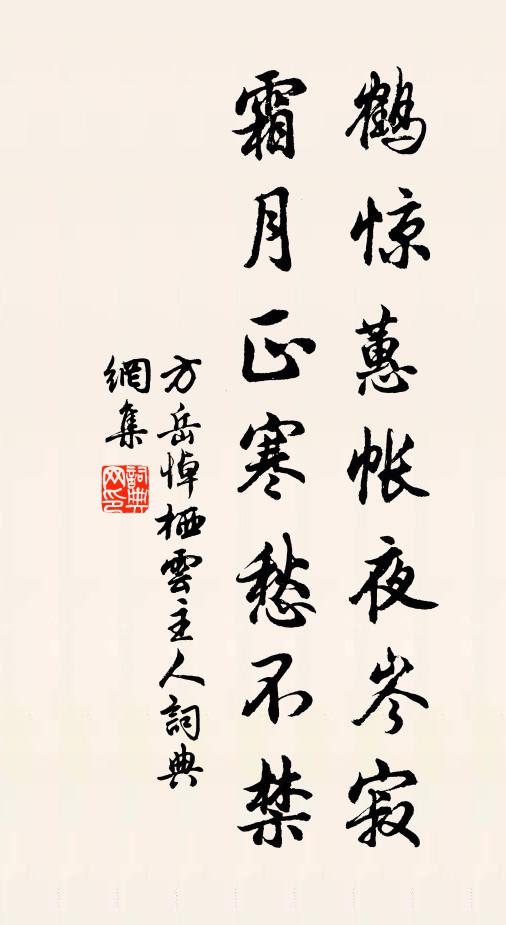 鶴惊蕙帐夜岑寂
霜月正寒愁不禁
方岳悼栖雲主人詞典
網集
詞典網印